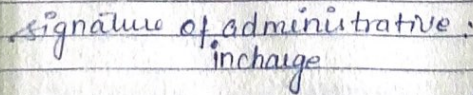 signature of administrative.
incharge